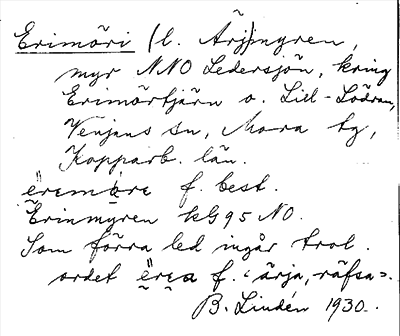 Erimöri (l. Ärj)myren,
myr NNO Ledersjön, kring
Erimörtjärn o. Lill-Lödran,
Venjans sn, Mora tg,
Kopparb. län.
f. best.
Erinmyren kG 95 NO.
Som förra led ingår trol.
ordet f. ‹ärja, räfsa›.
B. Lindén 1930.